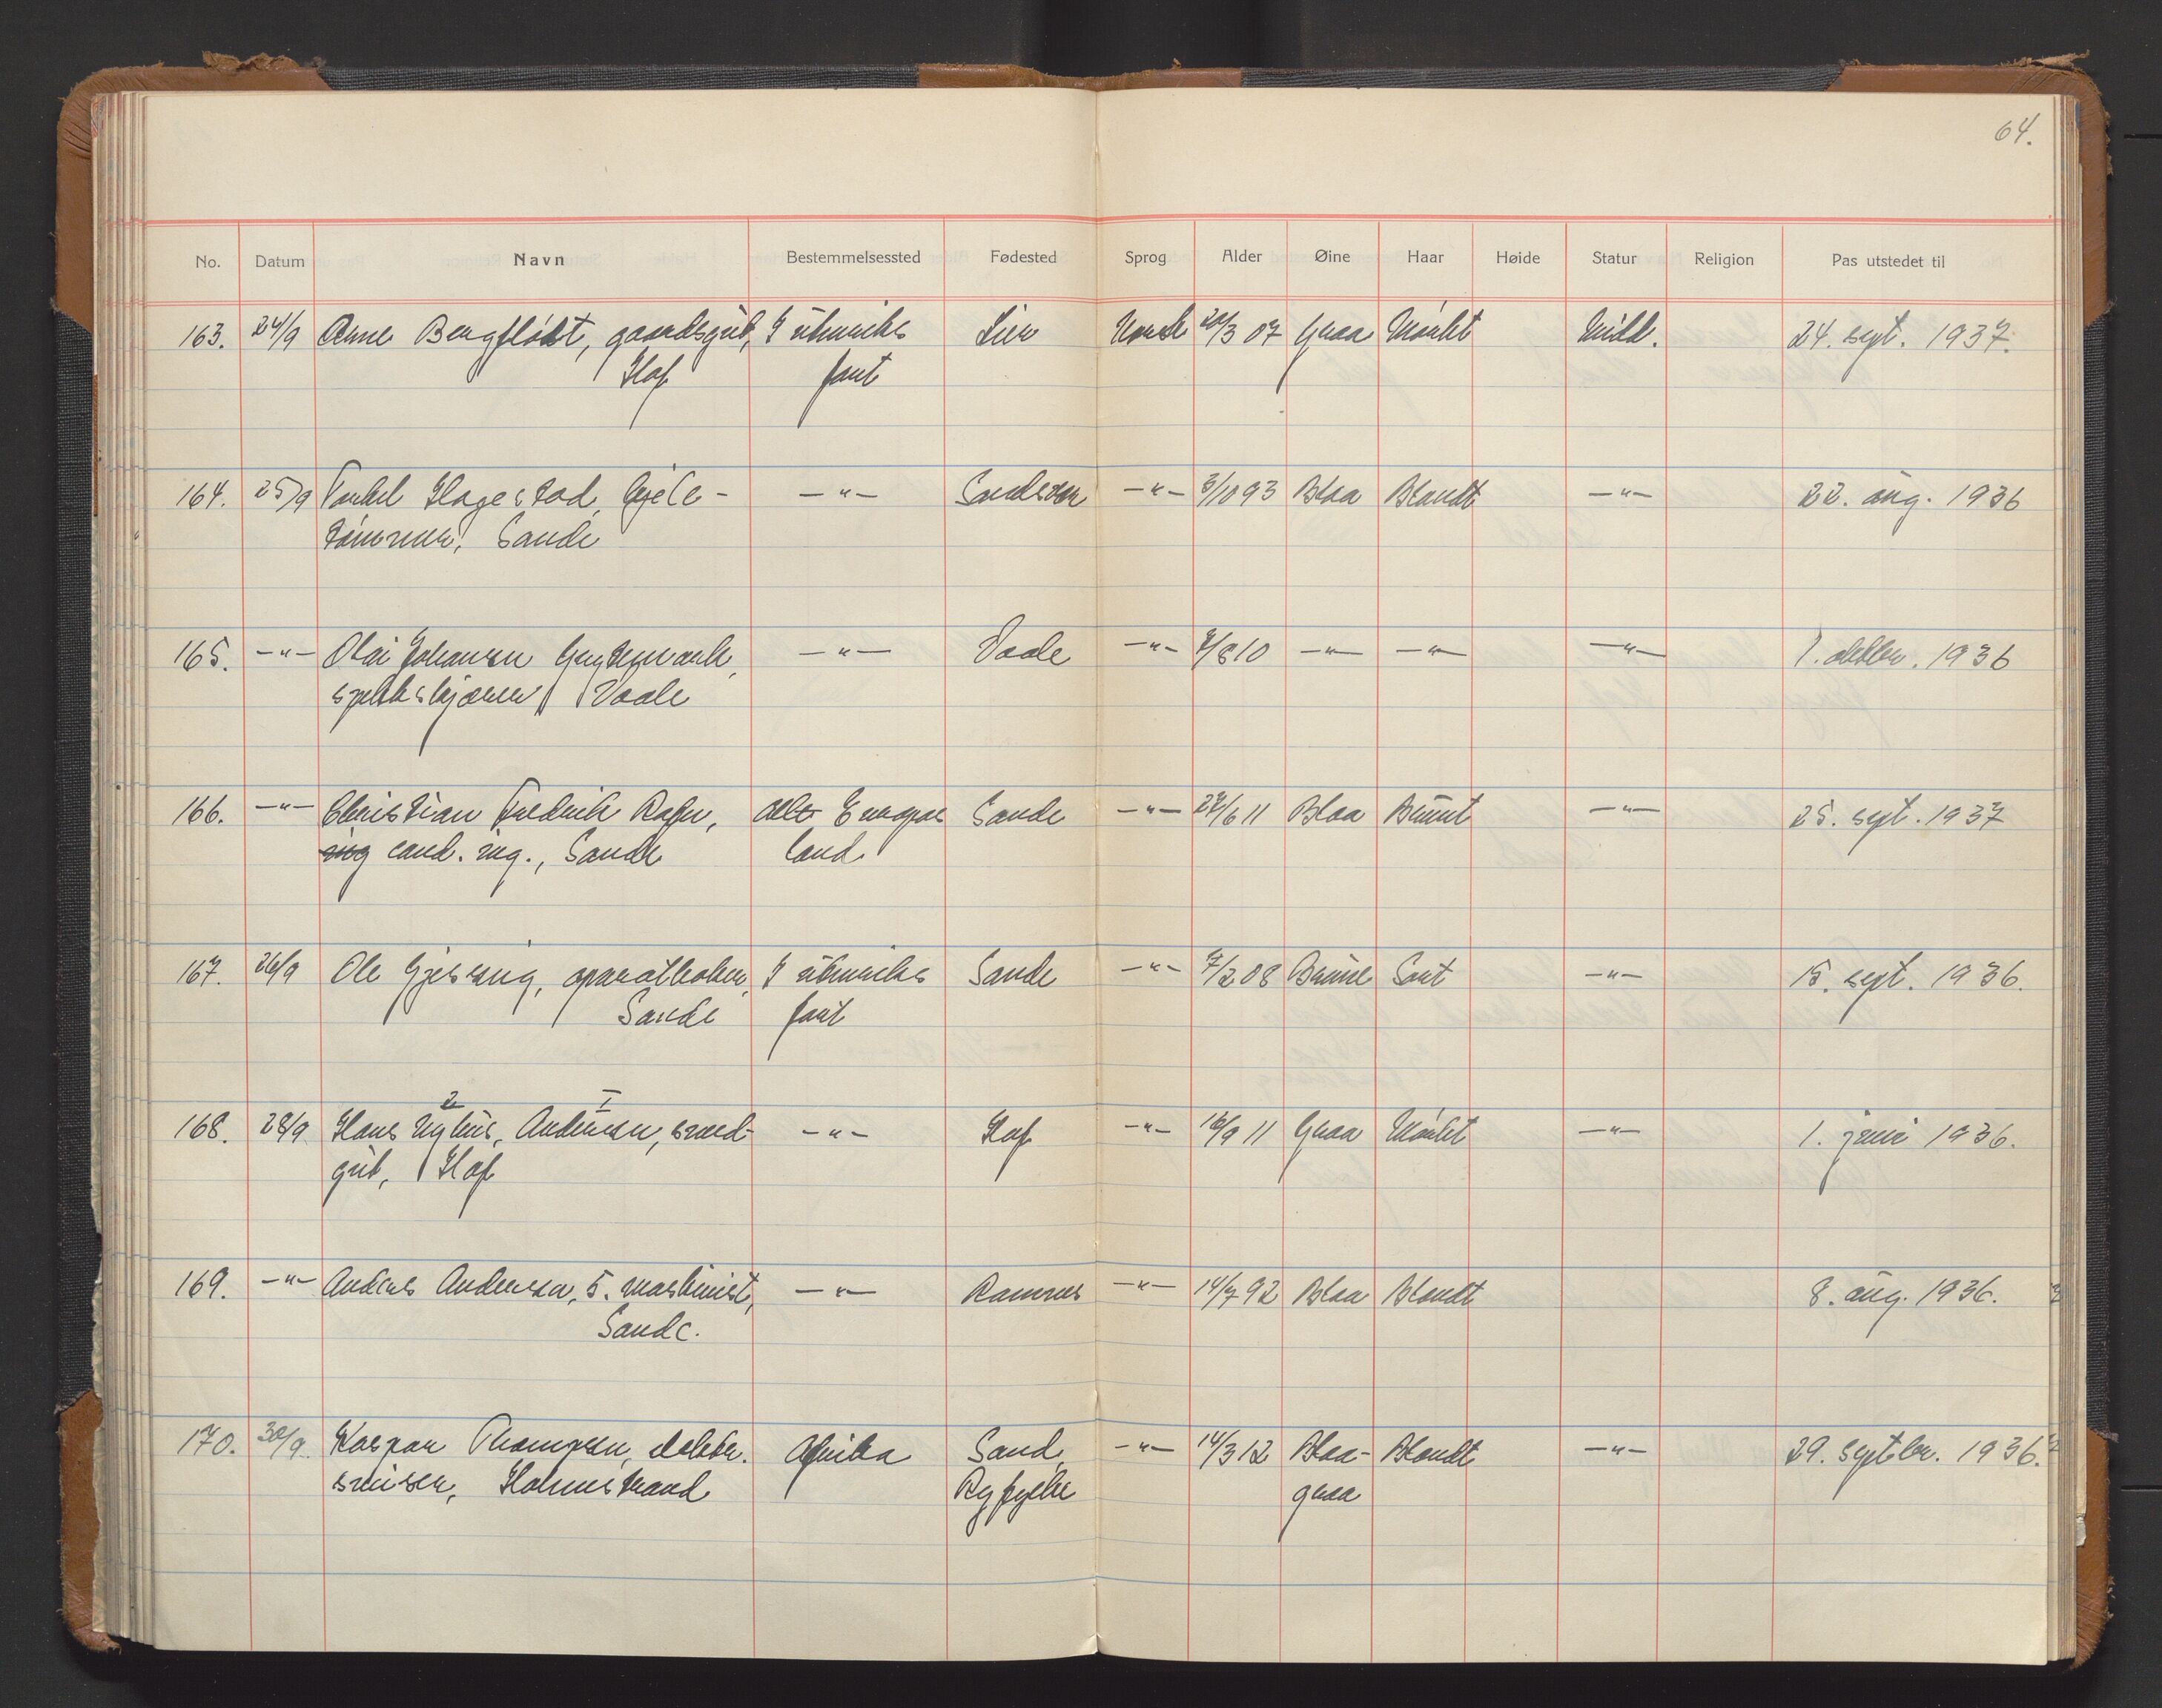 64.
No. Datum Navn Bestemmelsessted Fødested Sprog Alder Øine Haar Høide Statur Religion Pas utstedet til
163. 24/9 Arne Bergflødt, gaardsgut, I utenriks Lier Norsk 20/3 07 Graa Mørkt Midd. 24. sept. 1937.
Hof fart
164. 25/9 Torkel Hagestad, hjelp- —"— Sandsvær —"— 3/10 93 Blaa Blondt —"— 22. aug. 1936
tømmer, Sande
165. —"— Olai Johansen —"— Vaale —"— 7/8 10 —"— —"— —"— 1. oktbr. 1936
spekkskjærer, Vaale
166. —"— Christian Fredrik Rafn, alle Europas Sande —"— 27/6 11 Blaa Brunt —"— 25. sept. 1937
ing cand. ing., Sande land
167. 26/9 Ole Gjessing, aparatkoker, I utenriks Sande —"— 7/2 08 Brune Sort —"— 15. sept. 1936.
Sande fart
2 1
168. 28/9 Hans Nyhus, Andersen, smed- —"— Hof —"— 16/9 11 Graa Mørkt —"— 1. juni 1936.
gut, Hof
169. —"— Anders Andersen, 5. maskinist, —"— Ramnes —"— 14/7 92 Blaa Blondt 8. aug. 1936.
Sande.
170. 30/9. Kaspar Thompsen, doktor. Afrika Sand, —"— 14/3 12 Blaa- Blondt —"— 29. septbr. 1936.
Holmestrand Ryfylke graa